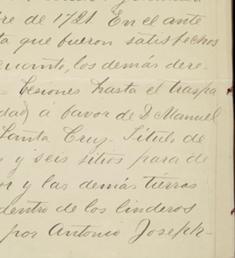 re de 1721. En el ante
ta que fueron satisfechos
cuanto, los demás dere-
esiones hasta el traspa
dad) á favor de D. Manuel
Santa Cruz. Título de
s y seis sitios para de
or y las demás tierras
dentro de los linderos
por Antonio Joseph-